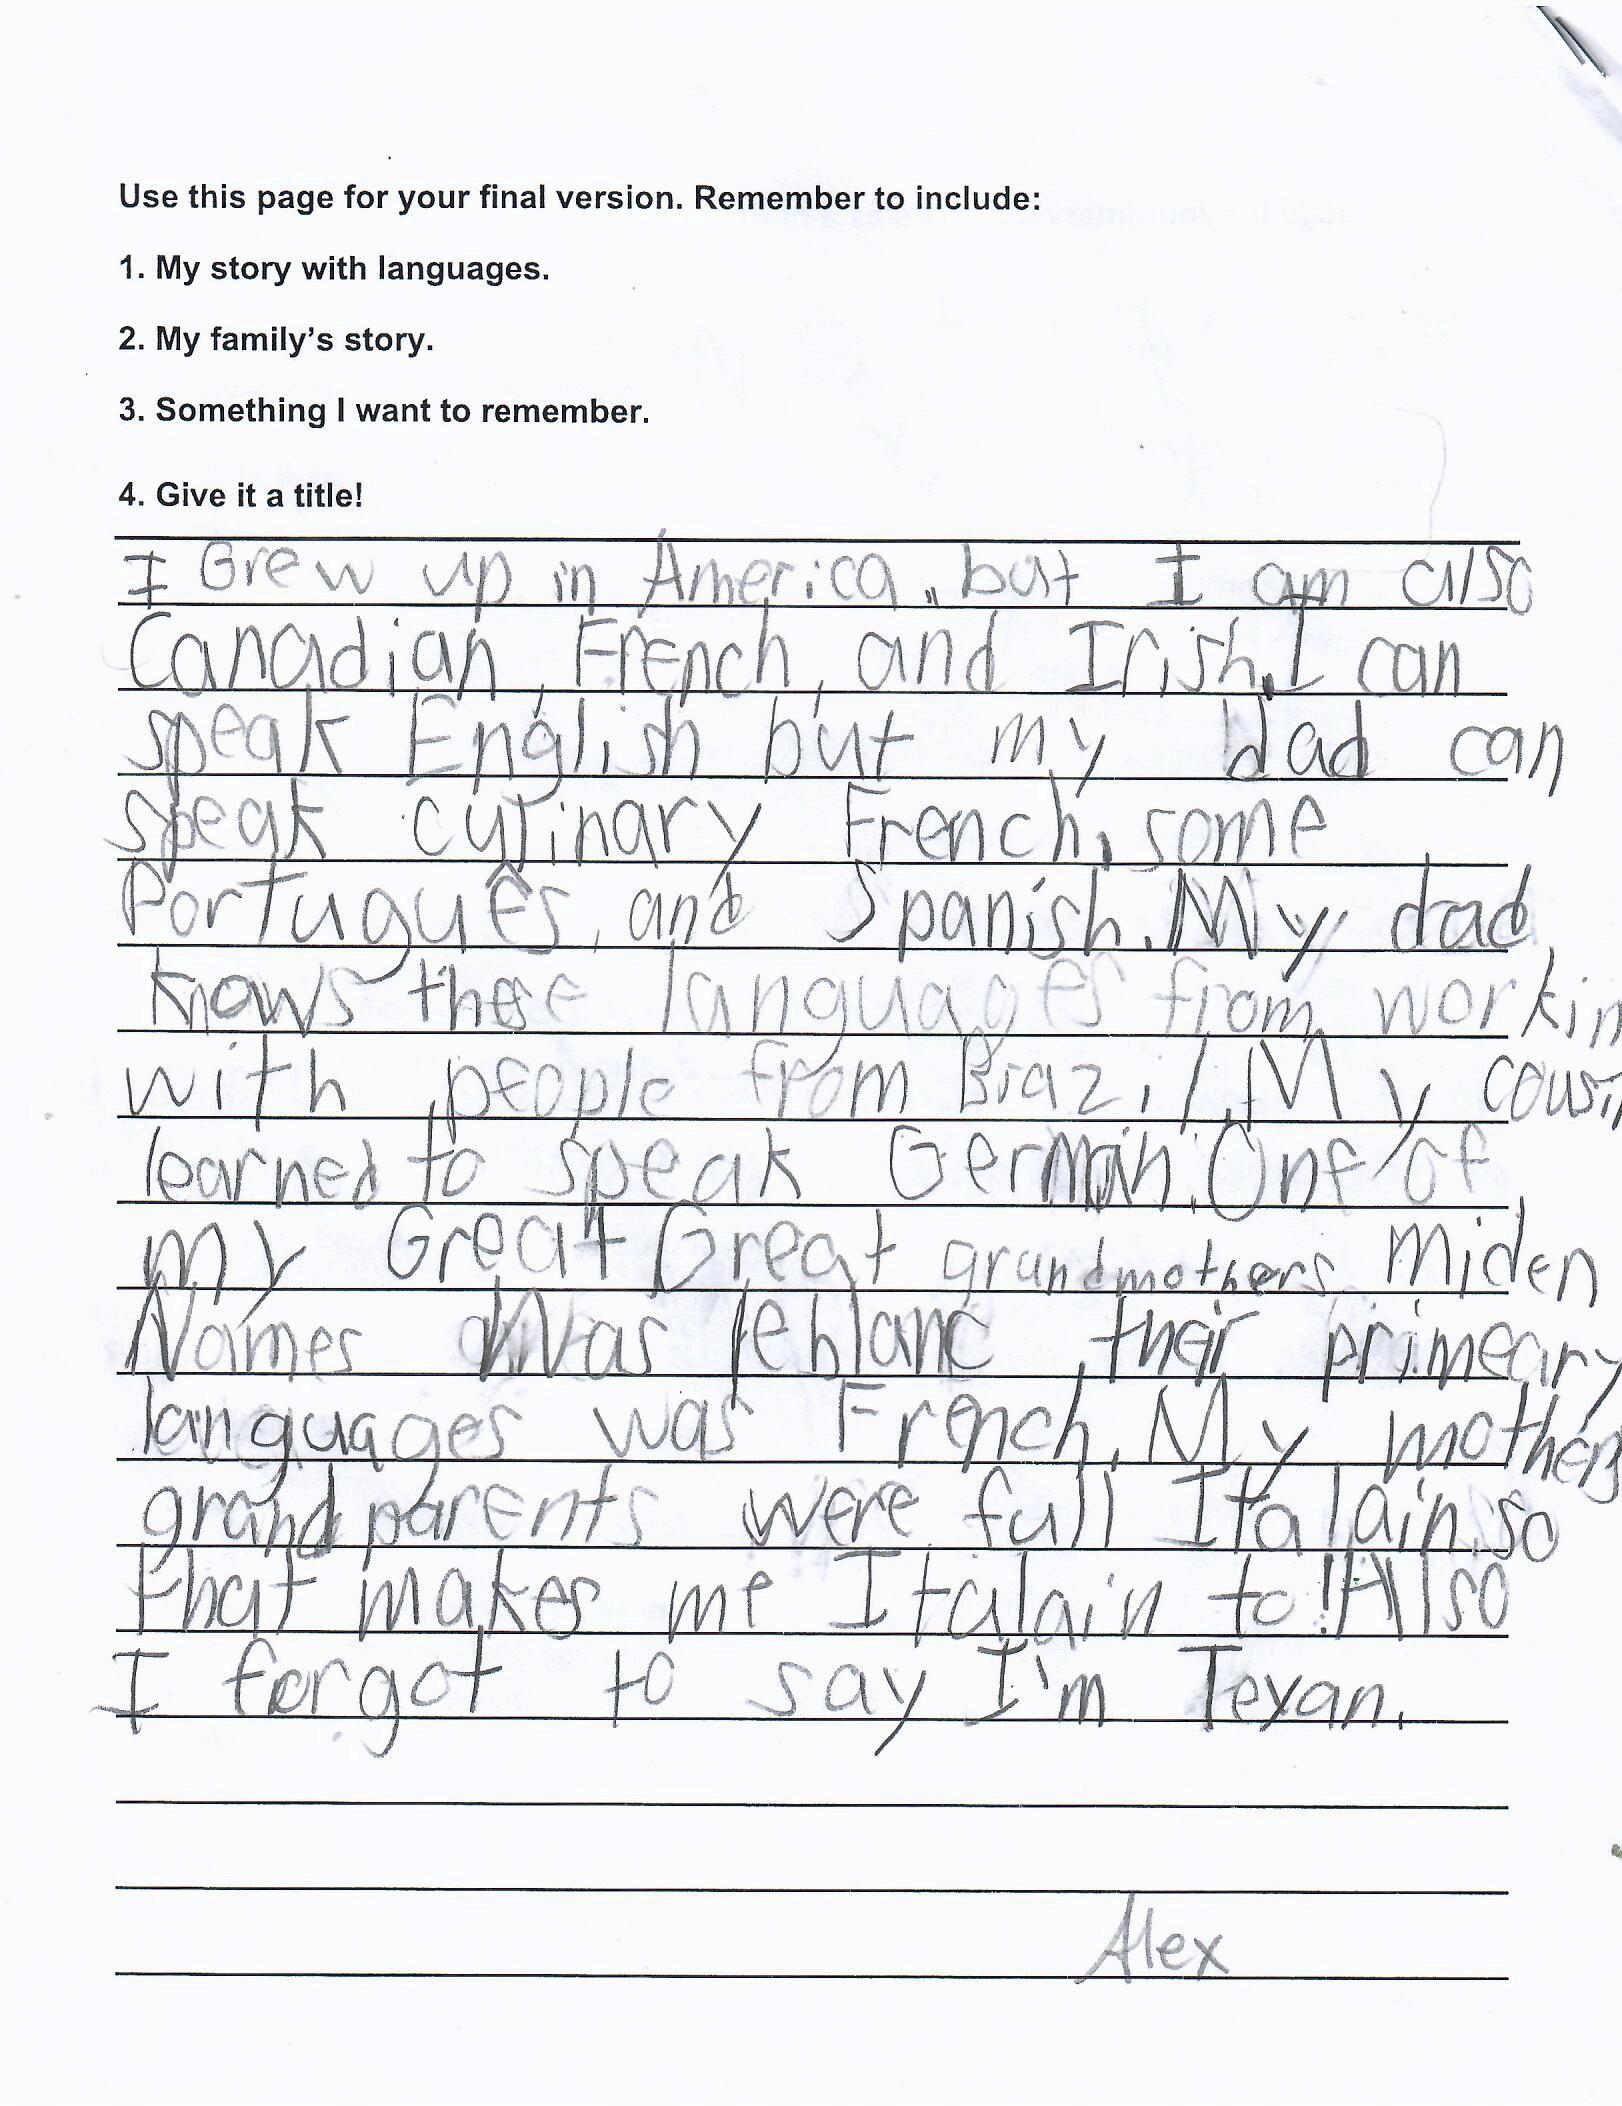 Use this page for your final version. Remember to include:
1. My story with languages.
2. My family's story.
3. Something I want to remember.
4. Give it a title!
I Grew up in America, but I am also
Canadian, French, and Irish. I can
speak English but my dad can
speak culinary French, some
Português, and Spanish. My dad
knows these languages from workin
with people from Brazil. My cousin
learned to speak German. One of
my Great Great grandmothers Miden
Names Was leblanc, their primeary
languages was French. My mothers
grandparents were full Italain, so
that makes me Italain to! Also
I forgot to say I'm Texan.
Alex